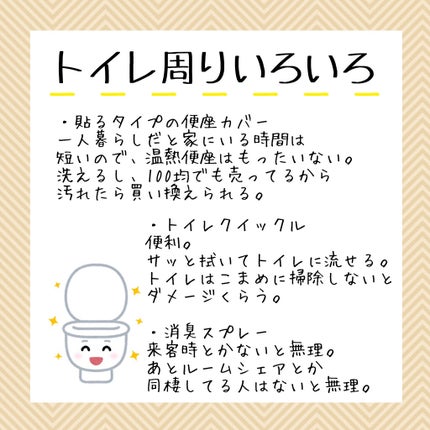 トイレ周りいろいろ
・貼るタイプの便座カバー
一人暮らしだと家にいる時間は
短いので、温熱便座はもったいない。
洗えるし、100均でも売ってるから
汚れたら買い換えられる。
・トイレクイックル
便利。
サッと拭いてトイレに流せる。
トイレはこまめに掃除しないと
ダメージくらう。
・消臭スプレー
来客時とかないと無理。
あとルームシェアとか
同棲してる人はないと無理。